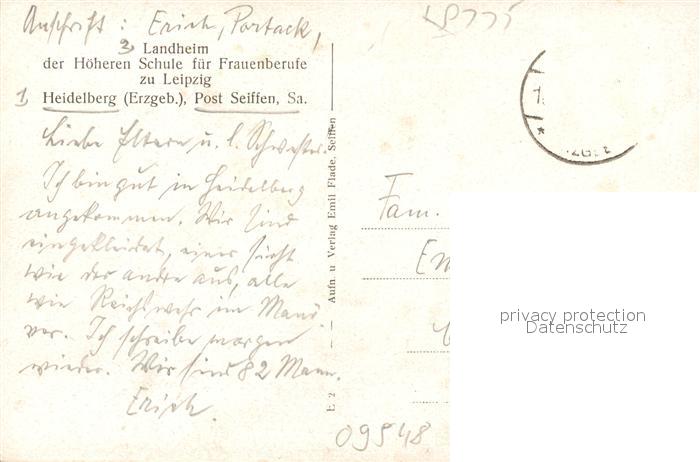 Anschrift: Erich Portack,
3 Landheim
der Höheren Schule für Frauenberufe
zu Leipzig
1 Heidelberg (Erzgeb.), Post Seiffen, Sa.
Liebe Eltern u. l. Schwester.
Ich bin gut in Heidelberg
angekommen. Wir sind
eingekleidet, einer sieht
wie der andre aus, alle
wie Reichswehr im Manö
ver. Ich schreibe morgen
wieder. Wir sind 82 Mann.
Erich.
E 2 — — Aufn. u Verlag Emil Flade, Seiffen
Fam.
09548
privacy protection
Datenschutz